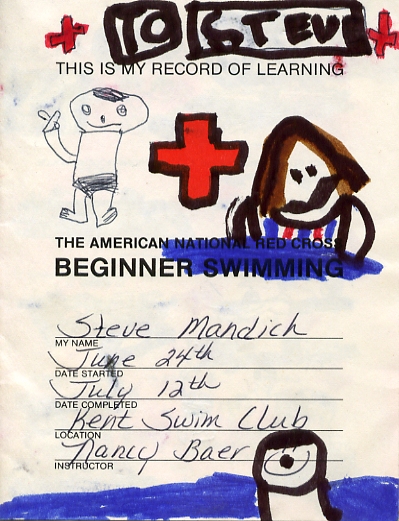 TO STEV
THIS IS MY RECORD OF LEARNING
THE AMERICAN NATIONAL RED CROSS
BEGINNER SWIMMING
Steve Mandich
MY NAME
June 24th
DATE STARTED
July 12th
DATE COMPLETED
Kent Swim Club
LOCATION
Nancy Baer
INSTRUCTOR